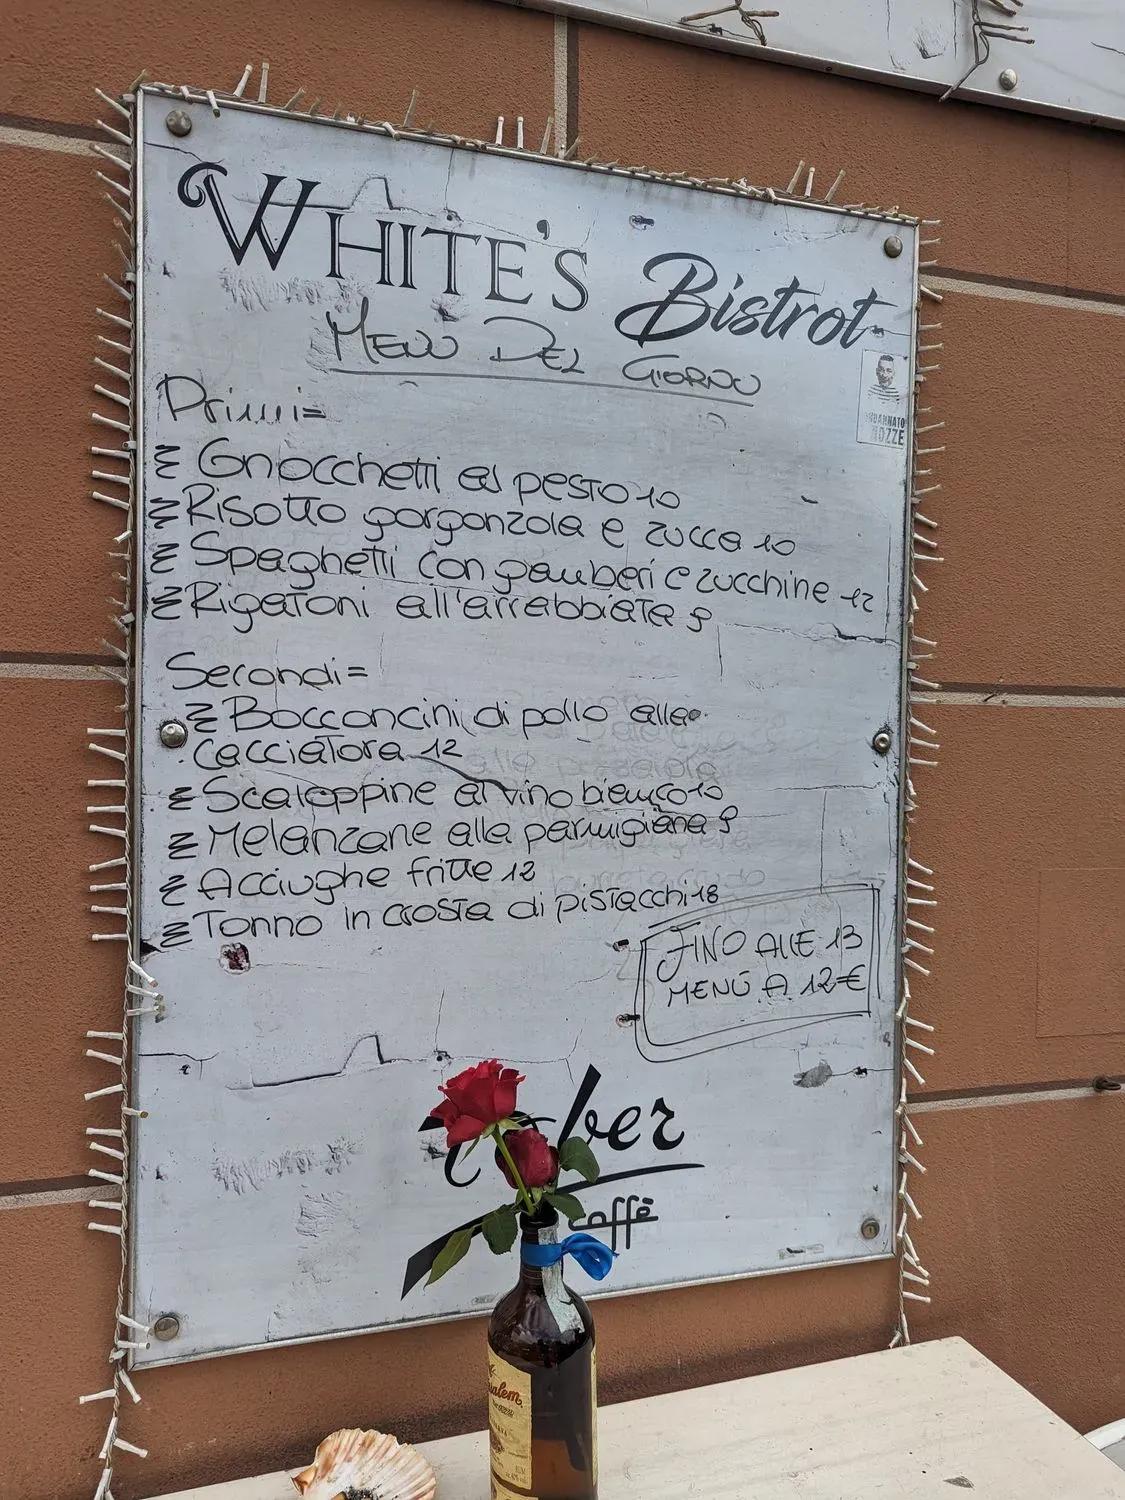 WHITE'S Bistrot
MENÙ DEL GIORNO
Primi=
Gnocchetti al pesto 10
Risotto gorgonzola e zucca 10
Spaghetti con gamberi e zucchine 12
Rigatoni all'arrabbiata 9
Secondi=
Bocconcini di pollo alla
cacciatora 12
Scaloppine al vino bianco 10
Melanzane alla parmigiana 9
Acciughe fritte 12
Tonno in crosta di pistacchi 18
FINO ALLE 13
MENÙ A 12€
NOZZE
caffè